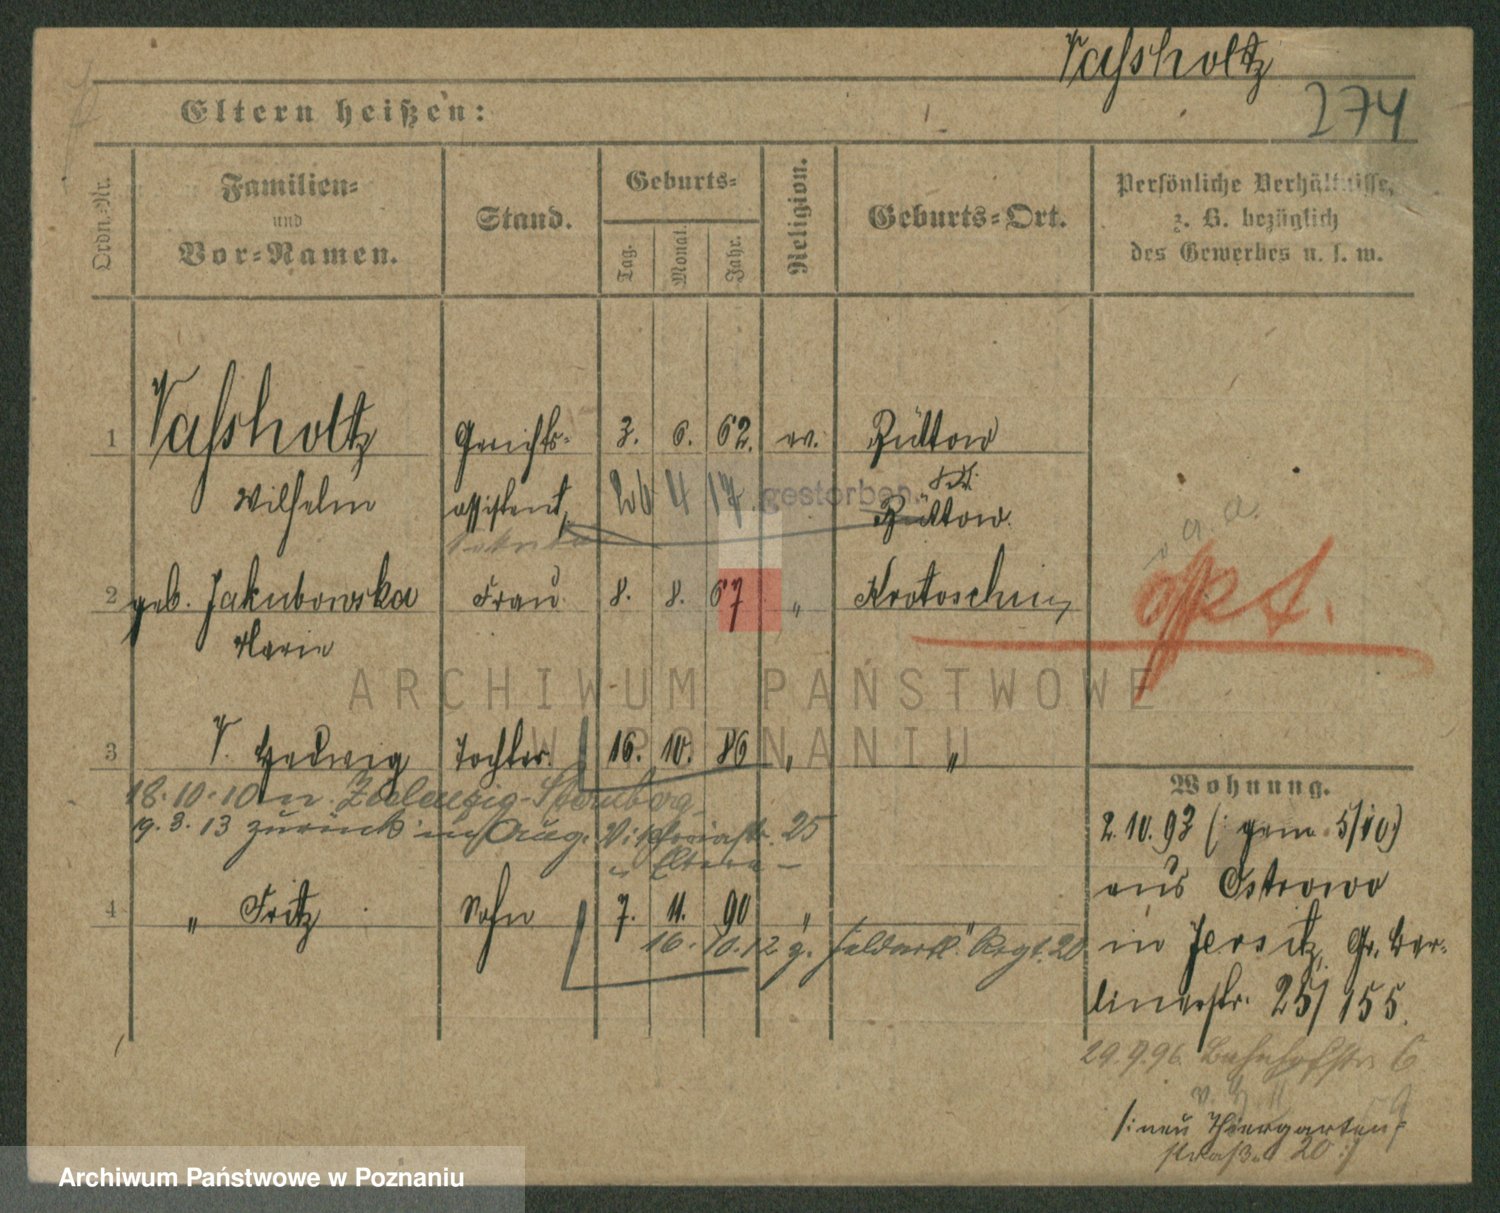 Vaßholtz
274
Eltern heißen:
Ordn.-Nr.
Familien-
und
Vor-Namen.
Stand.
Geburts-
Tag.
Monat.
Jahr.
Religion.
Geburts-Ort.
Persönliche Verhältnisse,
z. B. bezüglich
des Gewerbes u. s. w.
1 Vaßholtz Gerichts- 3. 6. 62. ev. Bütow
Wilhelm assistent, 26 4 17. gestorben.
Bütow.
2 geb. Jakubowska Frau 8. 8. 67 " Krotoschin
Marie
opt.
ARCHIWUM PAŃSTWOWE
W POZNANIU
3 V. Hedwig Tochter. 16. 10. 86 " "
18.10.10 n. Zielenzig-Sternberg
19.3.13 zurück Aug. Viktoriastr. 25
Eltern –
4 " Fritz Sohn 7. 11. 90 " "
16.10.12 z. Feldartl. Regt. 20
Wohnung.
2.10.93 (: gem. 5/10:)
aus Ostrowo
in Jersitz, Gr. Ber-
linerstr. 25/155.
29.9.96. Bahnhofstr. 6
/: neu Thiergarten-
straße 20 :/
Archiwum Państwowe w Poznaniu